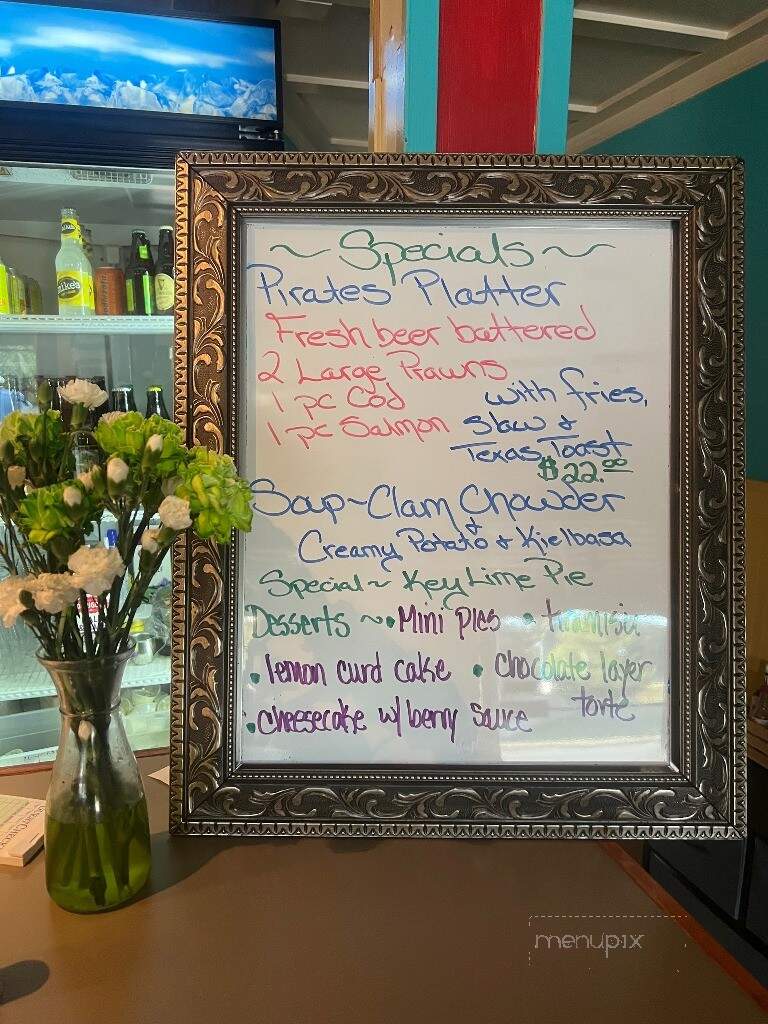 ~ Specials ~
Pirates Platter
Fresh beer battered
2 Large Prawns
1 pc Cod
1 pc Salmon
with fries,
slaw &
Texas Toast
$22.00
Soup ~ Clam Chowder
&
Creamy Potato & Kielbasa
Special ~ Key Lime Pie
Desserts ~ • Mini pies • tiramisu
• lemon curd cake • chocolate layer torte
• cheesecake w/ berry sauce
mike's
menupix